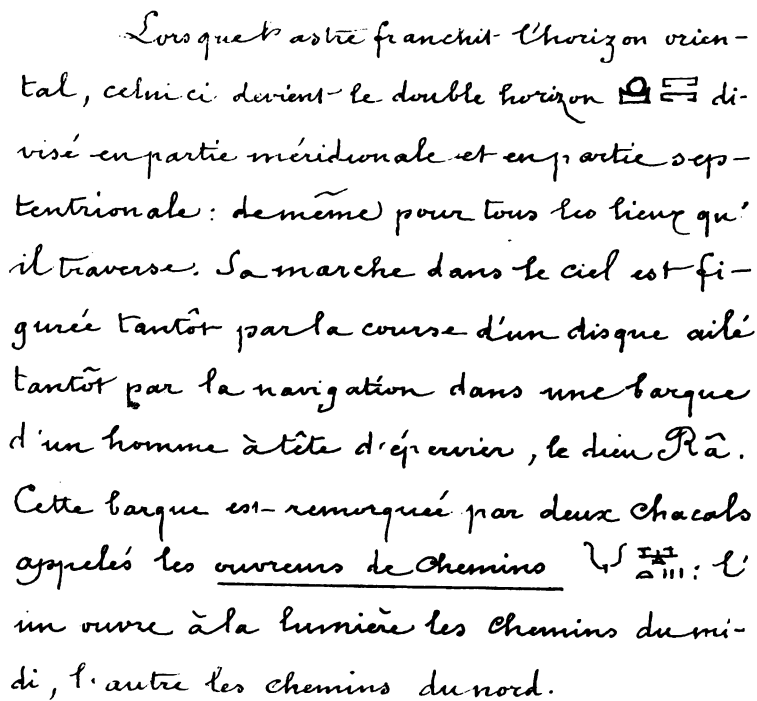 Lorsque l'astre franchit l'horizon orien-
tal, celui ci devient le double horizon di-
visé en partie méridionale et en partie sep-
tentrionale : de même pour tous les lieux qu'
il traverse. Sa marche dans le ciel est fi-
gurée tantôt par la course d'un disque ailé
tantôt par la navigation dans une barque
d'un homme à tête d'épervier, le dieu Râ.
Cette barque est remorquée par deux chacals
appelés les ouvreurs de chemins : l'
un ouvre à la lumière les chemins du mi-
di, l'autre les chemins du nord.